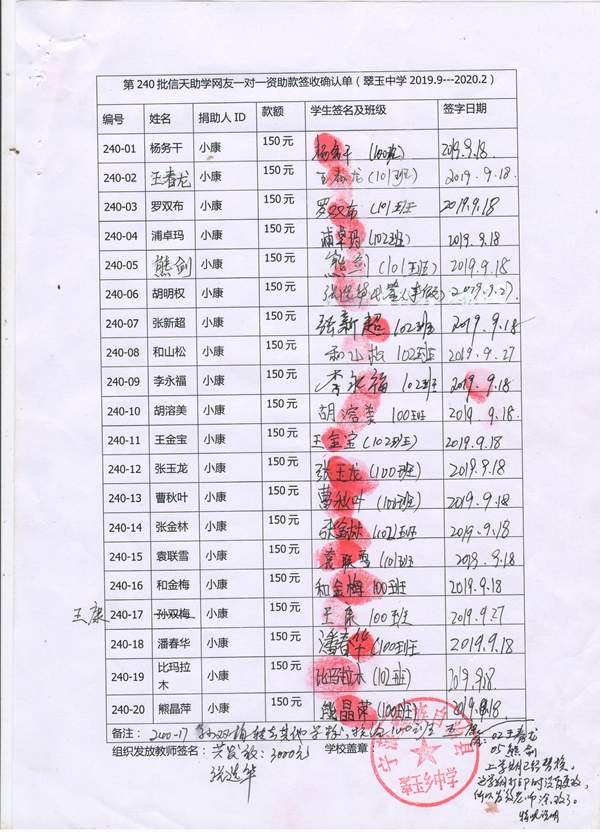 第240批信天助学网友一对一资助款签收确认单（翠玉中学2019.9---2020.2）
编号 姓名 捐助人ID 款额 学生签名及班级 签字日期
240-01 杨务干 小康 150元 杨务干（100班） 2019.9.18
240-02 王春龙 小康 150元 王春龙（101班） 2019.9.18
240-03 罗双布 小康 150元 罗双布（101班） 2019.9.18
240-04 浦卓玛 小康 150元 浦卓玛（102班） 2019.9.18
240-05 熊剑 小康 150元 熊剑（101班） 2019.9.18
240-06 胡明权 小康 150元 张选华代签（事假） 2019.9.27
240-07 张新超 小康 150元 张新超 102班 2019.9.18
240-08 和山松 小康 150元 和山松 102班 2019.9.27
240-09 李永福 小康 150元 李永福 102班 2019.9.18
240-10 胡溶美 小康 150元 胡溶美 100班 2019.9.18
240-11 王金宝 小康 150元 王金宝（102班） 2019.9.18
240-12 张玉龙 小康 150元 张玉龙（100班） 2019.9.18
240-13 曹秋叶 小康 150元 曹秋叶（100班） 2019.9.18
240-14 张金林 小康 150元 张金林（102班） 2019.9.18
240-15 袁联雪 小康 150元 袁联雪（101班） 2019.9.18
240-16 和金梅 小康 150元 和金梅 100班 2019.9.18
王康 240-17 孙双梅 小康 150元 王康 100班 2019.9.27
240-18 潘春华 小康 150元 潘春华（100班） 2019.9.18
240-19 比玛拉木 小康 150元 比玛拉木（102班） 2019.9.18
240-20 熊晶萍 小康 150元 熊晶萍（100班） 2019.9.18
备注：240-17 孙双梅转去其他学校，换为100班王康
组织发放教师签名：共发放：3000元 学校盖章：
张选华
翠玉乡中学
02王春龙
05熊剑
上学期已经替换，
这学期打印时没有更改，
所以发放老师涂改了。
特此说明